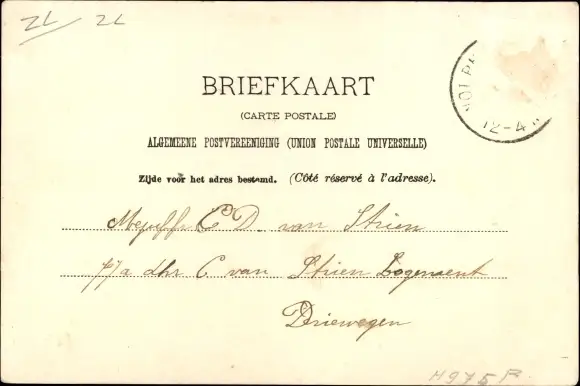 ZL ZL
BRIEFKAART
(CARTE POSTALE)
ALGEMEENE POSTVEREENIGING (UNION POSTALE UNIVERSELLE)
Zijde voor het adres bestemd. (Côté réservé à l'adresse).
12-4
Mejuffr C D. van Strien
p/a dhr C van Strien Logement
Driewegen
H975B